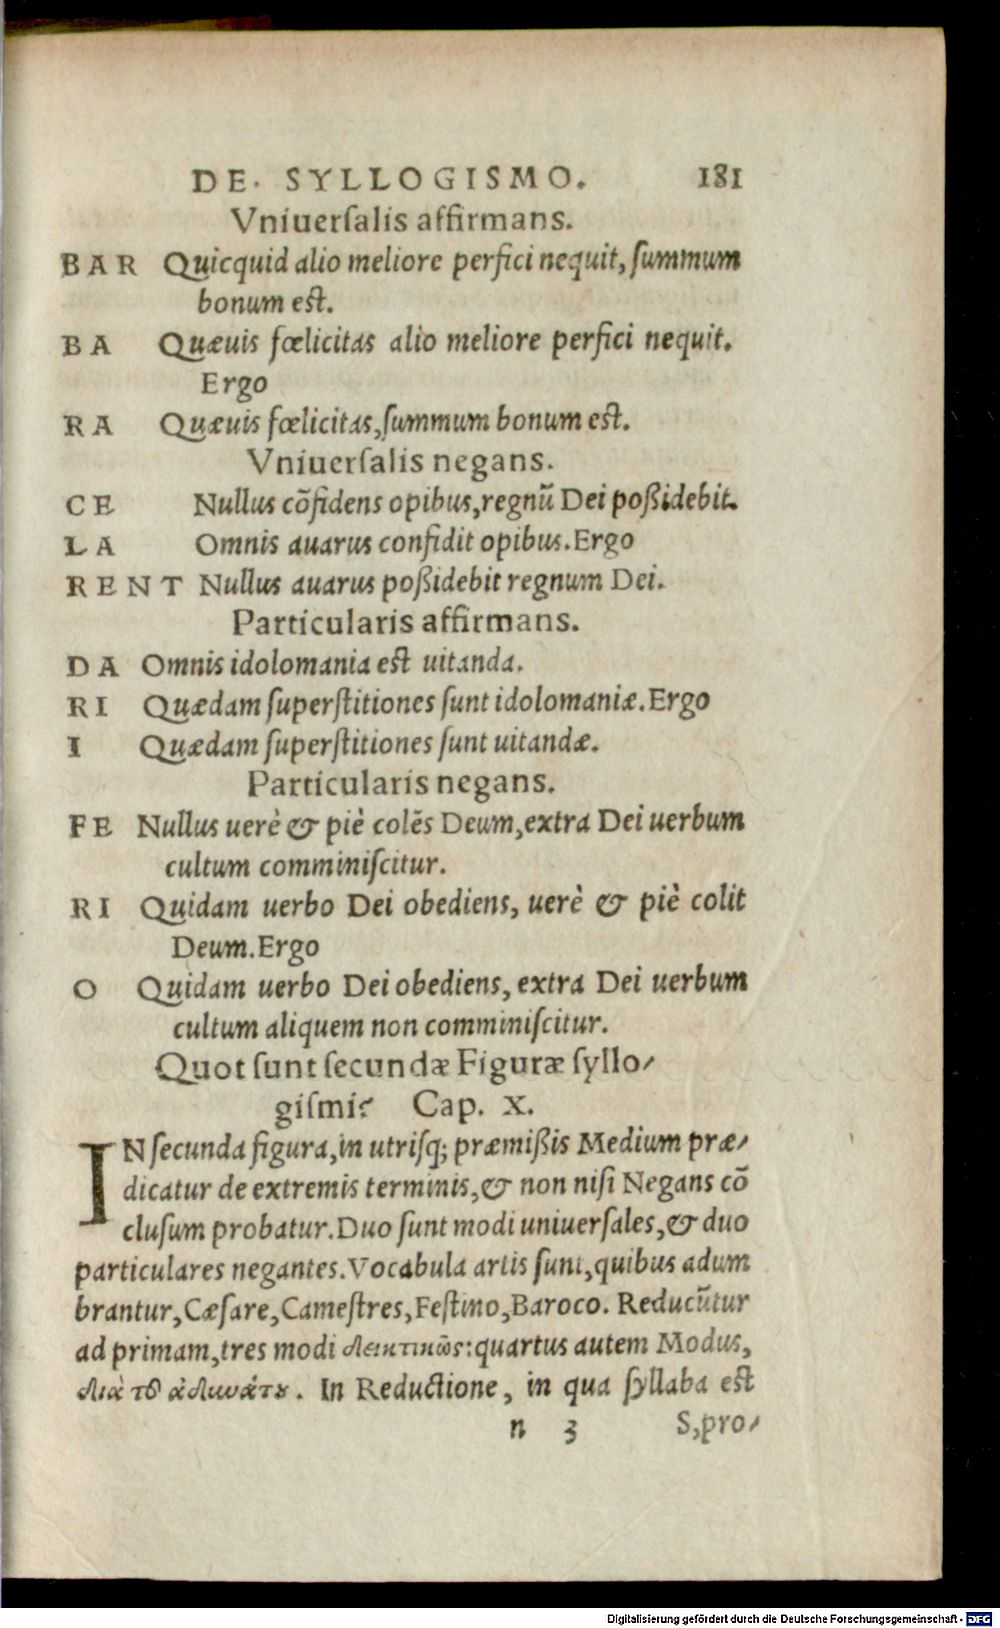 DE. SYLLOGISMO. 181
Vniuerſalis affirmans.
BAR Quicquid alio meliore perfici nequit, ſummum
bonum eſt.
BA Quæuis fœlicitas alio meliore perfici nequit.
Ergo
RA Quæuis fœlicitas, ſummum bonum eſt.
Vniuerſalis negans.
CE Nullus cōfidens opibus, regnū Dei poßidebit.
LA Omnis auarus confidit opibus. Ergo
RENT Nullus auarus poßidebit regnum Dei.
Particularis affirmans.
DA Omnis idolomania eſt uitanda.
RI Quædam ſuperſtitiones ſunt idolomaniæ. Ergo
I Quædam ſuperſtitiones ſunt uitandæ.
Particularis negans.
FE Nullus uerè & piè colēs Deum, extra Dei uerbum
cultum comminiſcitur.
RI Quidam uerbo Dei obediens, uerè & piè colit
Deum. Ergo
O Quidam uerbo Dei obediens, extra Dei uerbum
cultum aliquem non comminiſcitur.
Quot ſunt ſecundæ Figuræ ſyllo-
giſmi? Cap. X.
IN ſecunda figura, in utriſq; præmißis Medium præ-
dicatur de extremis terminis, & non niſi Negans cō
cluſum probatur. Duo ſunt modi uniuerſales, & duo
particulares negantes. Vocabula artis ſunt, quibus adum
brantur, Cæſare, Cameſtres, Feſtino, Baroco. Reducūtur
ad primam, tres modi δεικτικῶς: quartus autem Modus,
διὰ τοῦ ἀδυνάτου. In Reductione, in qua ſyllaba eſt
n 3 S, pro-
Digitalisierung gefördert durch die Deutsche Forschungsgemeinschaft - DFG